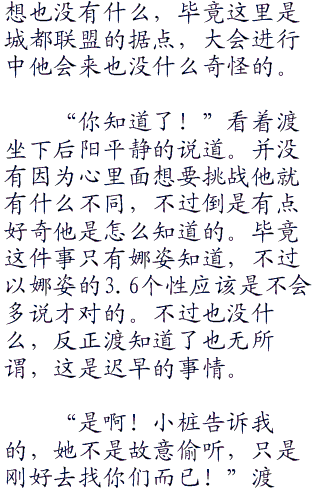 想也没有什么，毕竟这里是
城都联盟的据点，大会进行
中他会来也没什么奇怪的。
“你知道了！”看着渡
坐下后阳平静的说道。并没
有因为心里面想要挑战他就
有什么不同，不过倒是有点
好奇他是怎么知道的。毕竟
这件事只有娜姿知道，不过
以娜姿的3.6个性应该是不会
多说才对的。不过也没什
么，反正渡知道了也无所
谓，这是迟早的事情。
“是啊！小桩告诉我
的，她不是故意偷听，只是
刚好去找你们而已！”渡